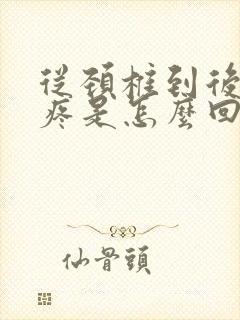 從頚椎到後
疼是怎麼回
仙骨頭